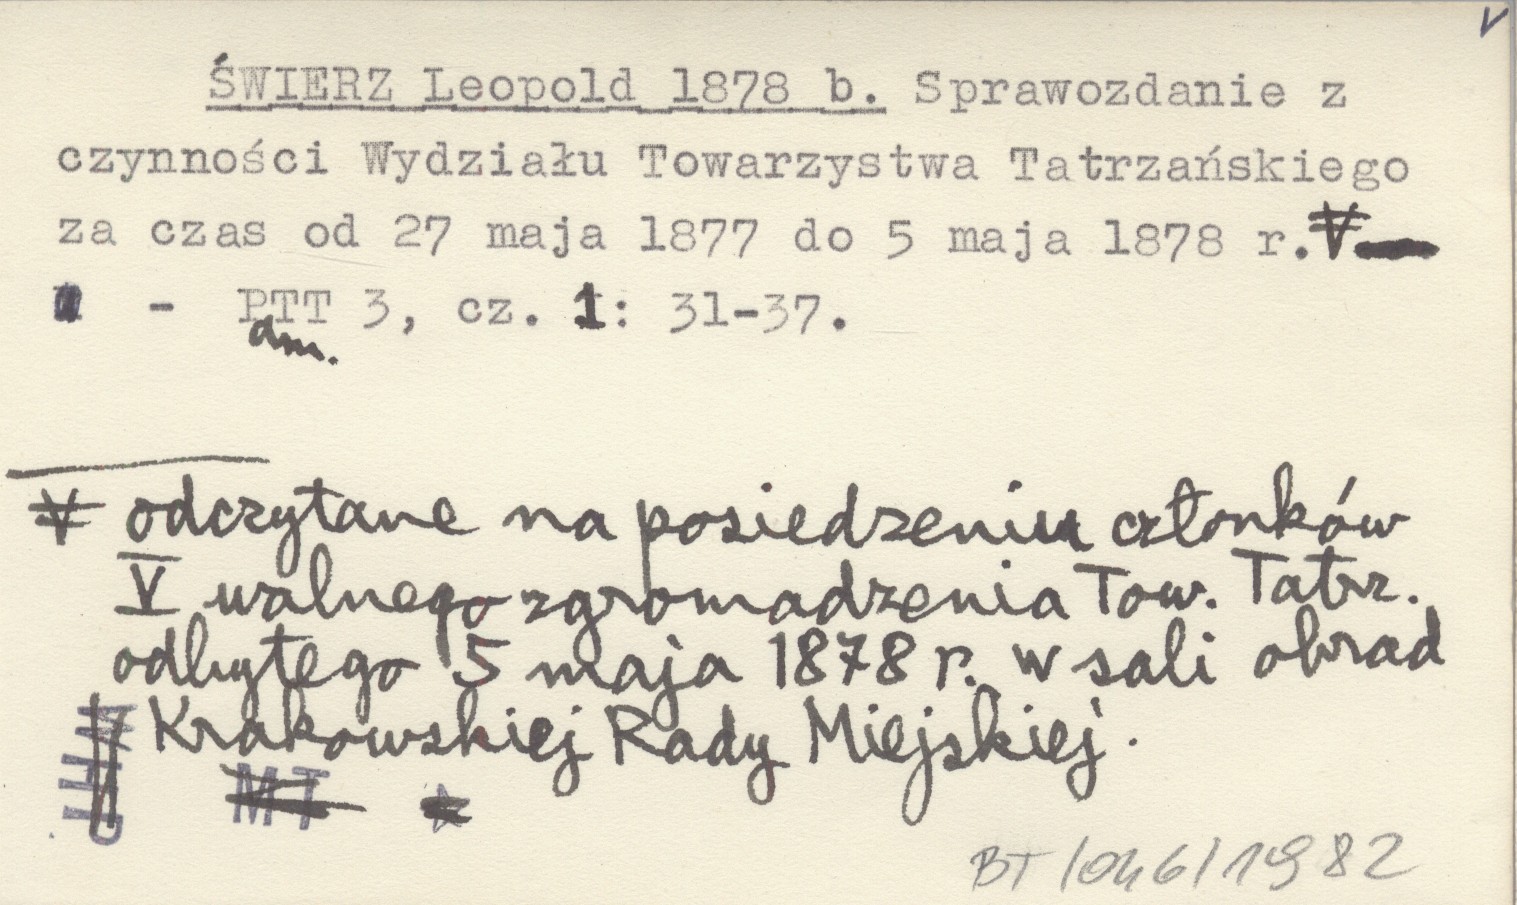 V
ŚWIERZ Leopold 1878 b. Sprawozdanie z
czynności Wydziału Towarzystwa Tatrzańskiego
za czas od 27 maja 1877 do 5 maja 1878 r. V
- PTT 3, cz. 1: 31-37.
am.
V odczytane na posiedzeniu członków
V walnego zgromadzenia Tow. Tatrz.
odbytego 5 maja 1878 r. w sali obrad
Krakowskiej Rady Miejskiej.
MT
BT/046/1982